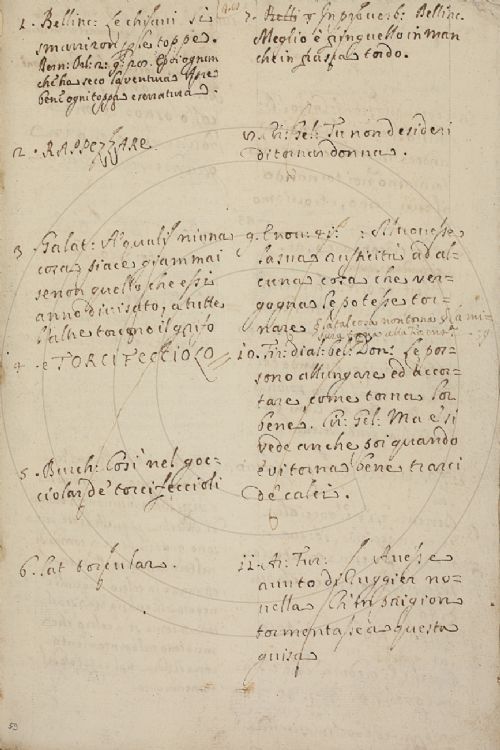 1. Bellinc: Le chiavi si
smarriron, e le toppe.
che ha seco la ventura Apre
bene ogni toppa e serratura.
2. RAPPEZZARE.
3 Galat: A' quali niuna
cosa piace giammai
se non quello che essi
anno divisato, a tutte
l'altre torcono il grifo
4. e TORCIFECCIOLO
5. Burch: Così nel goc-
ciolar de' torcifeccioli
6. Lat torcular.
7. Proverb: Bellinc.
Meglio è fringuello in man
che in frasca tordo.
Tu non desideri
di tornar donna.
9.
la sua rusticità ad al-
cuna cosa che ver-
gogna le potesse tor-
nare
10. Fir: dial: bel: Don: Le pos-
sono allungare ed accor-
tare come torna lor
bene. Cir: Gel: Ma e' si
vede anche poi quando
e' vi torna bene trarci
de' calci.
11. Ar: Fur: Avesse
avuto di Ruggier no-
vella Ch'in prigion
tormentasse a questa
guisa
59